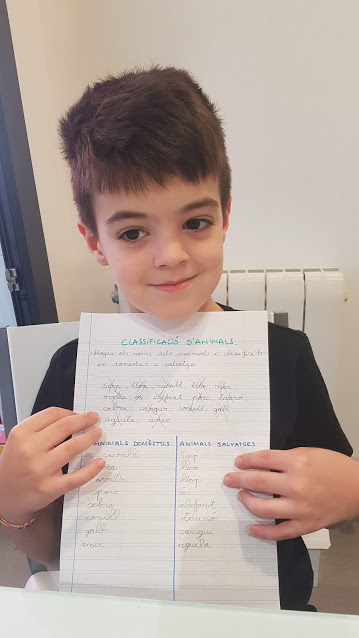 CLASSIFICACIÓ D'ANIMALS.
Llegeix els noms dels animals i classifica'ls
en domèstics o salvatges
llop, cavall, lleó, vaca
ovella, ós, elefant, porc, tauró
cabra, cangur, conill, gall
àguila, ànec
ANIMALS DOMÈSTICS ANIMALS SALVATGES
cavall
vaca lleó
ovella llop
porc ós
cabra elefant
conill tauró
gall cangur
ànec àguila